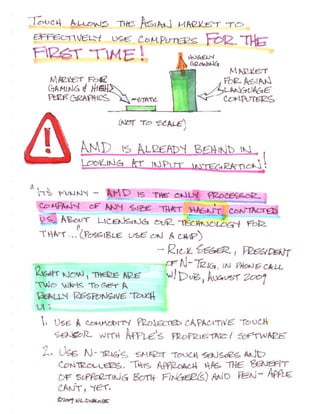 TOUCH ALLOWS THE ASIAN MARKET TO
EFFECTIVELY USE COMPUTERS FOR THE
FIRST TIME!
HUGELY
GROWING
MARKET FOR
GAMING & HIGH
PERF GRAPHICS
STATIC
MARKET
FOR ASIAN
LANGUAGE
COMPUTERS
(NOT TO SCALE)
AMD IS ALREADY BEHIND IN
LOOKING AT INPUT INTEGRATION!
"IT'S FUNNY - AMD IS THE ONLY PROCESSOR
COMPANY OF ANY SIZE THAT HASN'T CONTACTED
US ABOUT LICENSING OUR TECHNOLOGY FOR
THAT..." (POSSIBLE USE ON A CHIP)
- RICK SEGER, PRESIDENT
OF N-TRIG, IN PHONE CALL
W/ DUB, AUGUST 2009
RIGHT NOW, THERE ARE
TWO WAYS TO GET A
REALLY RESPONSIVE TOUCH
UI:
1. USE A COMMODITY PROJECTED CAPACITIVE TOUCH
SENSOR WITH APPLE'S PROPRIETARY SOFTWARE
2. USE N-TRIG'S SMART TOUCH SENSORS AND
CONTROLLERS. THIS APPROACH HAS THE BENEFIT
OF SUPPORTING BOTH FINGER(S) AND PEN - APPLE
CAN'T, YET.
©2009